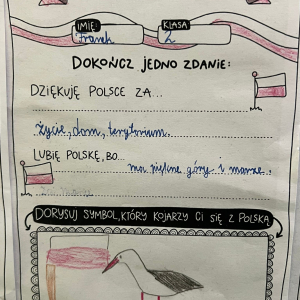 IMIĘ: Franek KLASA 2
DOKOŃCZ JEDNO ZDANIE:
DZIĘKUJĘ POLSCE ZA...
życie, dom, terytorium.
LUBIĘ POLSKĘ, BO...
ma piękne góry i morze.
DORYSUJ SYMBOL, KTÓRY KOJARZY CI SIĘ Z POLSKĄ